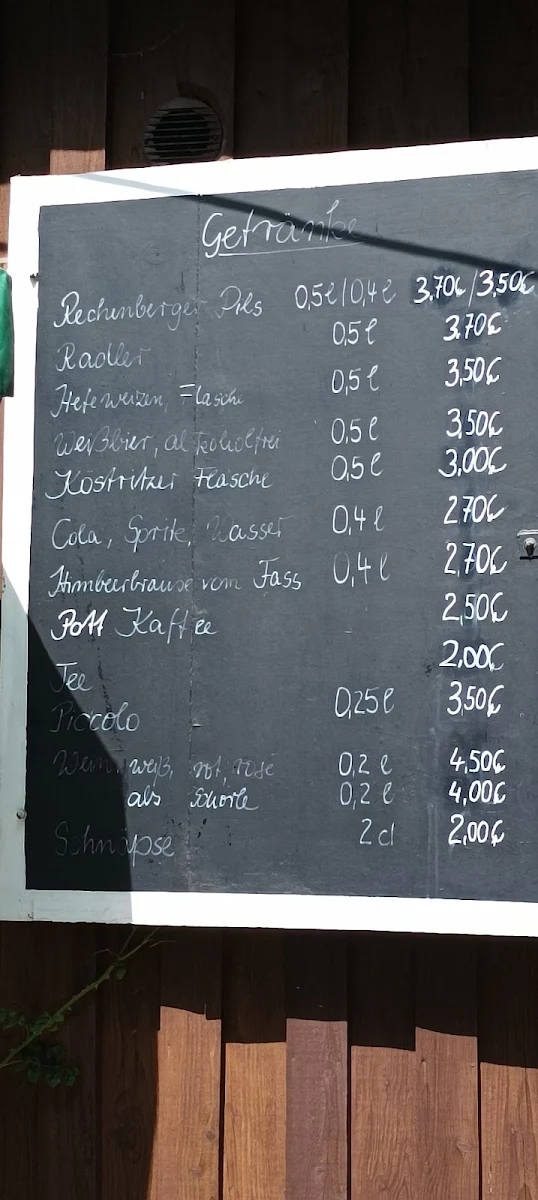 Getränke
Rechenberger Pils 0,5l/0,4l 3,70€/3,50€
Radler 0,5l 3,70€
Hefeweizen, Flasche 0,5l 3,50€
Weißbier, alkoholfrei 0,5l 3,50€
Köstritzer Flasche 0,5l 3,00€
Cola, Sprite, Wasser 0,4l 2,70€
Himbeerbrause vom Fass 0,4l 2,70€
Pott Kaffee 2,50€
Tee 2,00€
Piccolo 0,25l 3,50€
Wein, weiß, rot, rosé 0,2l 4,50€
als Schorle 0,2l 4,00€
Schnäpse 2cl 2,00€